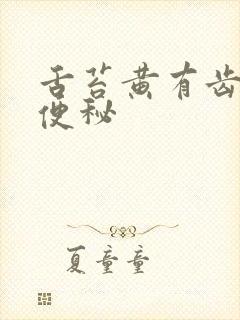 舌苔黄有齿
便秘
夏童童